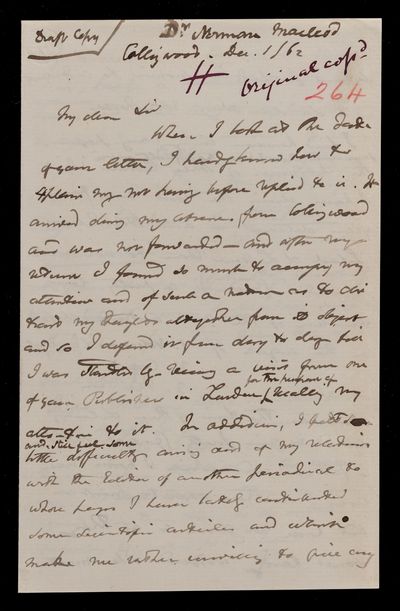 Draft Copy
Dr Norman Macleod
Collingwood. Dec. 1/62
Original cop^d
264
My dear Sir
When I look at the date
of your letter, I hardly know how to
explain my not having before replied to it. It
arrived during my absence from Collingwood
and was not forwarded — and after my
return I found so much to occupy my
attention and of such a nature as to dis
tract my thoughts altogether from its object
and so I deferred it from day to day till
I was startled by receiving a visit from one
for the purpose of
of your Publishers in London recalling my
attention to it. In addition, I felt
and still feel some
little difficulty arising out of my relations
with the Editor of another periodical to
whose pages I have lately contributed
some scientific articles and which
makes me rather unwilling to give any